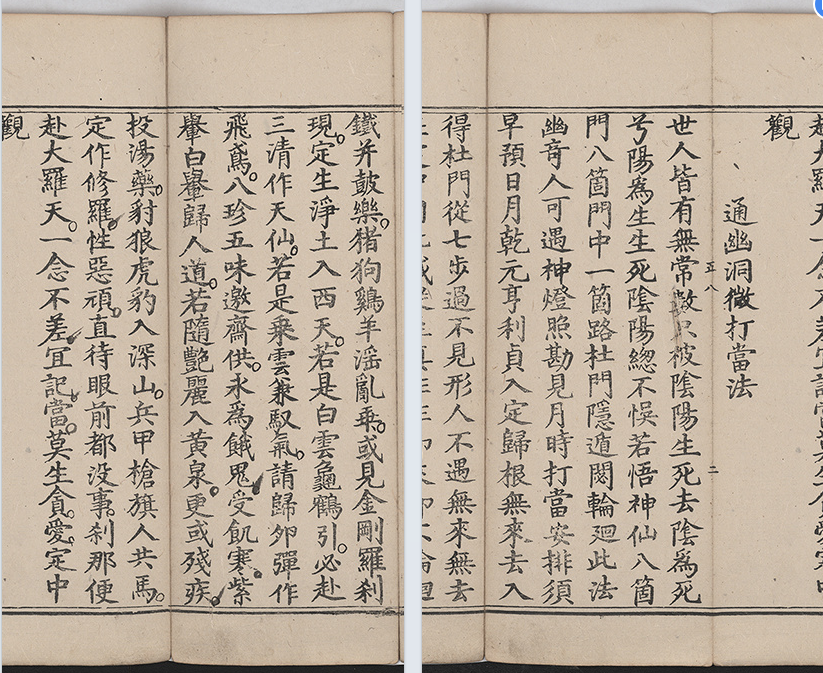 觀
通幽洞微打當法
五八
二
世人皆有無常數只被陰陽生死去陰為死
兮陽為生生死陰陽總不悞若悟神仙八箇
門八箇門中一箇路杜門隱遁閡輪廻此法
幽奇人可遇神燈照勘見月時打當安排須
早預日月乾元亨利貞入定歸根無來去入
得杜門從七步過不見形人不遇無來無去
鐵并皷樂。猪狗鷄羊滛亂乘。或見金剛羅刹
現。定生淨土入西天。若是白雲龜鶴引。必赴
三清作天仙。若是乘雲兼馭氣。請歸卵彈作
飛鳶。八珍五味邀齋供。永為餓鬼受飢寒。紫
轝白轝歸人道。若隨艷麗入黄泉。更或殘疾。
投湯藥。豺狼虎豹入深山。兵甲槍旗人共馬。
定作修羅。性惡頑。直待眼前都没事。刹那便
赴大羅天。一念不差宜記當。莫生貪愛。定中
觀